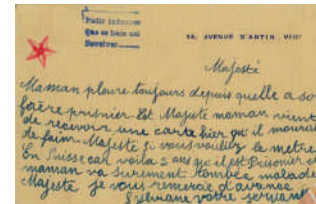 14, AVENUE D'ANTIN. VIIIᵉ
Majesté
Maman pleure toujours depuis quelle a so
frère prisnier Et Majesté maman vient
de recevoir une carte hier qu il mourai
de faim Majesté si vous vouliez le metre
En Suisse car voila 2 ans qu il est Prisonier et
maman va surement tombée malade
Majesté je vous remercie d'avance
Sylviane votre servant